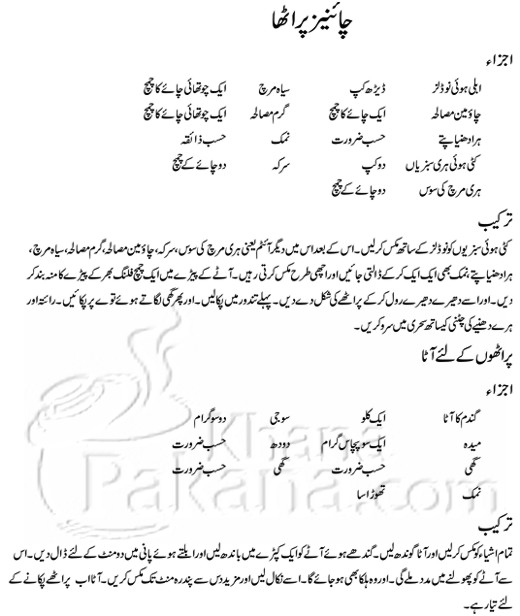 چائنیز پراٹھا
اجزاء
ابلی ہوئی نوڈلز ڈیڑھ کپ سیاہ مرچ ایک چوتھائی چائے کا چمچ
چاؤمین مصالحہ ایک چائے کا چمچ گرم مصالحہ ایک چوتھائی چائے کا چمچ
ہرا دھنیا پتے حسب ضرورت نمک حسب ذائقہ
کٹی ہوئی ہری سبزیاں دو کپ سرکہ دو چائے کے چمچ
ہری مرچ کی سوس دو چائے کے چمچ
ترکیب
کٹی ہوئی سبزیوں کو نوڈلز کے ساتھ مکس کرلیں۔ اس کے بعد اس میں دیگر آئٹم یعنی ہری مرچ کی سوس، سرکہ، چاؤمین مصالحہ، گرم مصالحہ، سیاہ مرچ،
ہرا دھنیا پتے، نمک بھی ایک ایک کرکے ڈالتی جائیں اور اچھی طرح مکس کرتی رہیں۔ آٹے کے پیڑے میں ایک چمچ فلنگ بھر کے پیڑے کا منہ بند کر
دیں۔ اور اسے دھیرے دھیرے رول کرکے پراٹھے کی شکل دے دیں۔ پہلے تندور میں پکالیں۔ اور پھر گھی لگاتے ہوئے توے پر پکائیں۔ رائتہ اور
ہرے دھنیے کی چٹنی کیساتھ سحری میں سرو کریں۔
پراٹھوں کے لئے آٹا
اجزاء
گندم کا آٹا ایک کلو سوجی دو سو گرام
میدہ ایک سو پچاس گرام دودھ حسب ضرورت
گھی حسب ضرورت گھی حسب ضرورت
نمک تھوڑا سا
Khana
Pakana.com
ترکیب
تمام اشیاء کو مکس کرلیں اور آٹا گوندھ لیں۔ گندھے ہوئے آٹے کو ایک کپڑے میں باندھ لیں اور ابلتے ہوئے پانی میں دو منٹ کے لئے ڈال دیں۔ اس
سے آٹے کو پھولنے میں مدد ملے گی۔ اور وہ ہلکا بھی ہو جائے گا۔ اسے نکال لیں اور مزید دس سے پندرہ منٹ تک مکس کریں۔ آٹا اب پراٹھے پکانے کے
لئے تیار ہے۔